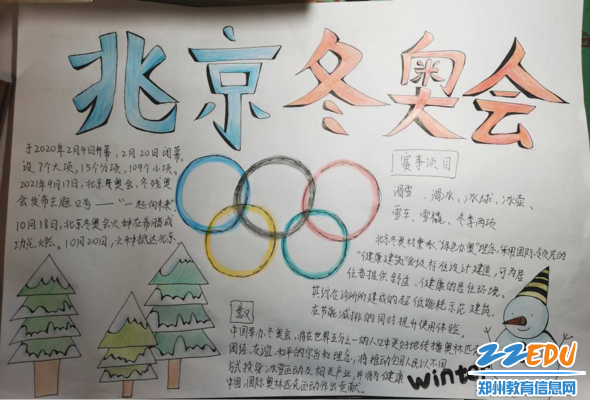 北京冬奥会
于2020年2月4日开幕，2月20日闭幕，
设7个大项，15个分项，109个小项。
2021年9月17日，北京冬奥会、冬残奥
会发布主题口号——“一起向未来”
10月18日，北京冬奥会火种在希腊成
功点燃。10月20日，火种抵达北京。
赛事项目
滑雪、滑冰、冰球、冰壶、
雪车、雪橇、冬季两项
北京冬奥村秉承“绿色办奥”理念，采用国际
“健康建筑”标准设计建造，可为居
住者提供舒适、健康的居住环境。
建成的超低能耗示范建筑，
在节能减排的同时提升使用体验。
意义
中国举办冬奥会，将在世界五分之一的人口中更好地传播奥林匹克
团结、友谊、和平的宗旨和理念，将推动全国人民以不同
方式投身冰雪运动及相关产业，并将与健康
中国，国际奥林匹克运动作出贡献。
winter
ZZEDU
郑州教育信息网